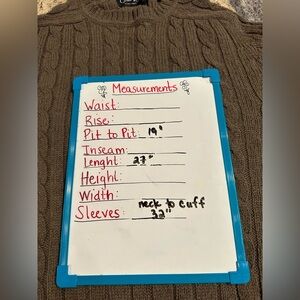 Measurements
Waist:
Rise:
Pit to Pit: 19"
Inseam:
Lenght: 27"
Height:
Width:
neck to cuff
Sleeves: 32"